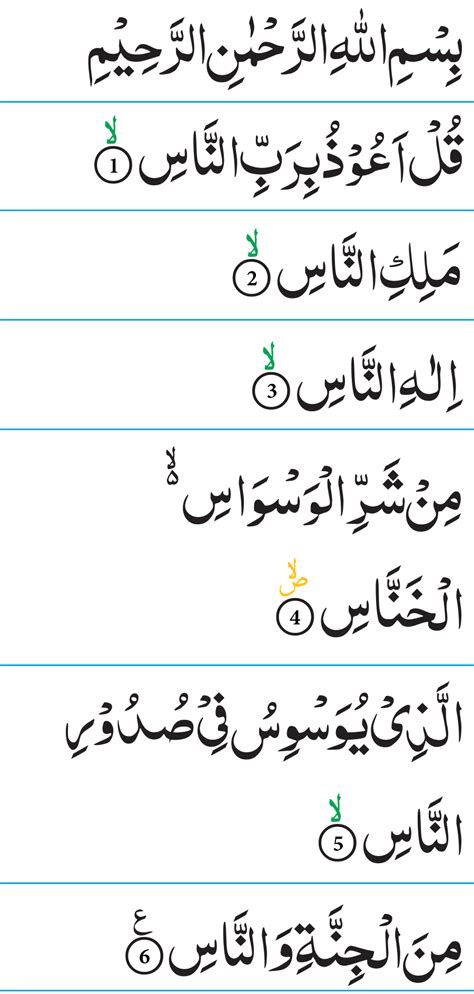 بِسْمِ اللهِ الرَّحْمٰنِ الرَّحِيْمِ
قُلْ اَعُوْذُ بِرَبِّ النَّاسِ ۙ 1
مَلِكِ النَّاسِ ۙ 2
اِلٰهِ النَّاسِ ۙ 3
مِنْ شَرِّ الْوَسْوَاسِ ۙ۵
الْخَنَّاسِ ۙ ص 4
الَّذِيْ يُوَسْوِسُ فِيْ صُدُوْرِ
النَّاسِ ۙ 5
مِنَ الْجِنَّةِ وَ النَّاسِ ع 6